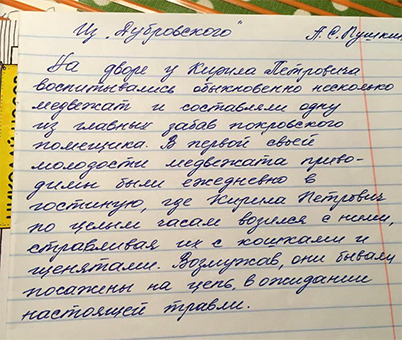 Из „Дубровского“ А. С. Пушкин
На дворе у Кирила Петровича
воспитывались обыкновенно несколько
медвежат и составляли одну
из главных забав покровского
помещика. В первой своей
молодости медвежата приво-
димы были ежедневно в
гостиную, где Кирила Петрович
по целым часам возился с ними,
стравливая их с кошками и
щенятами. Возмужав, они бывали
посажены на цепь, в ожидании
настоящей травли.